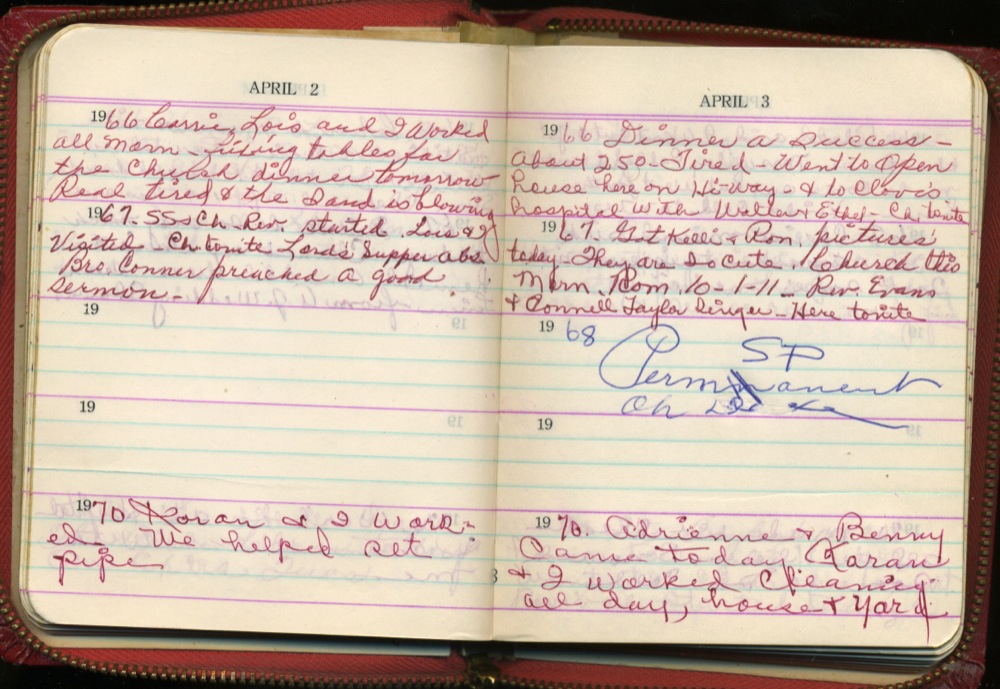 APRIL 2
1966 Carrie, Lois and I worked
all morn - fixing tables for
the Church dinner tomorrow
Real tired & the sand is blowing
1967. SS & Ch - Rev. started Lois & I
Visited Ch. tonite Lord's Supper obs
Bro. Conner preached a good
sermon -
19
19
1970. Koran & I work-
ed. We helped set
pipe
APRIL 3
1966 Dinner a success -
about 250 - Tired - Went to Open
house here on Hi-way - & to Clovis
hospital with Walter & Ethel - Ch. tonite
1967. Got Kelli & Ron. pictures
today - They are so cute. Church this
Morn. Rom 10-1-11 - Rev. Evans
& Connell Taylor Singer - Here tonite
1968
SP
Permanent
Oh
19
1970. Adrienne & Benny
Came today Karan
& I worked Cleaning
all day, house & yard